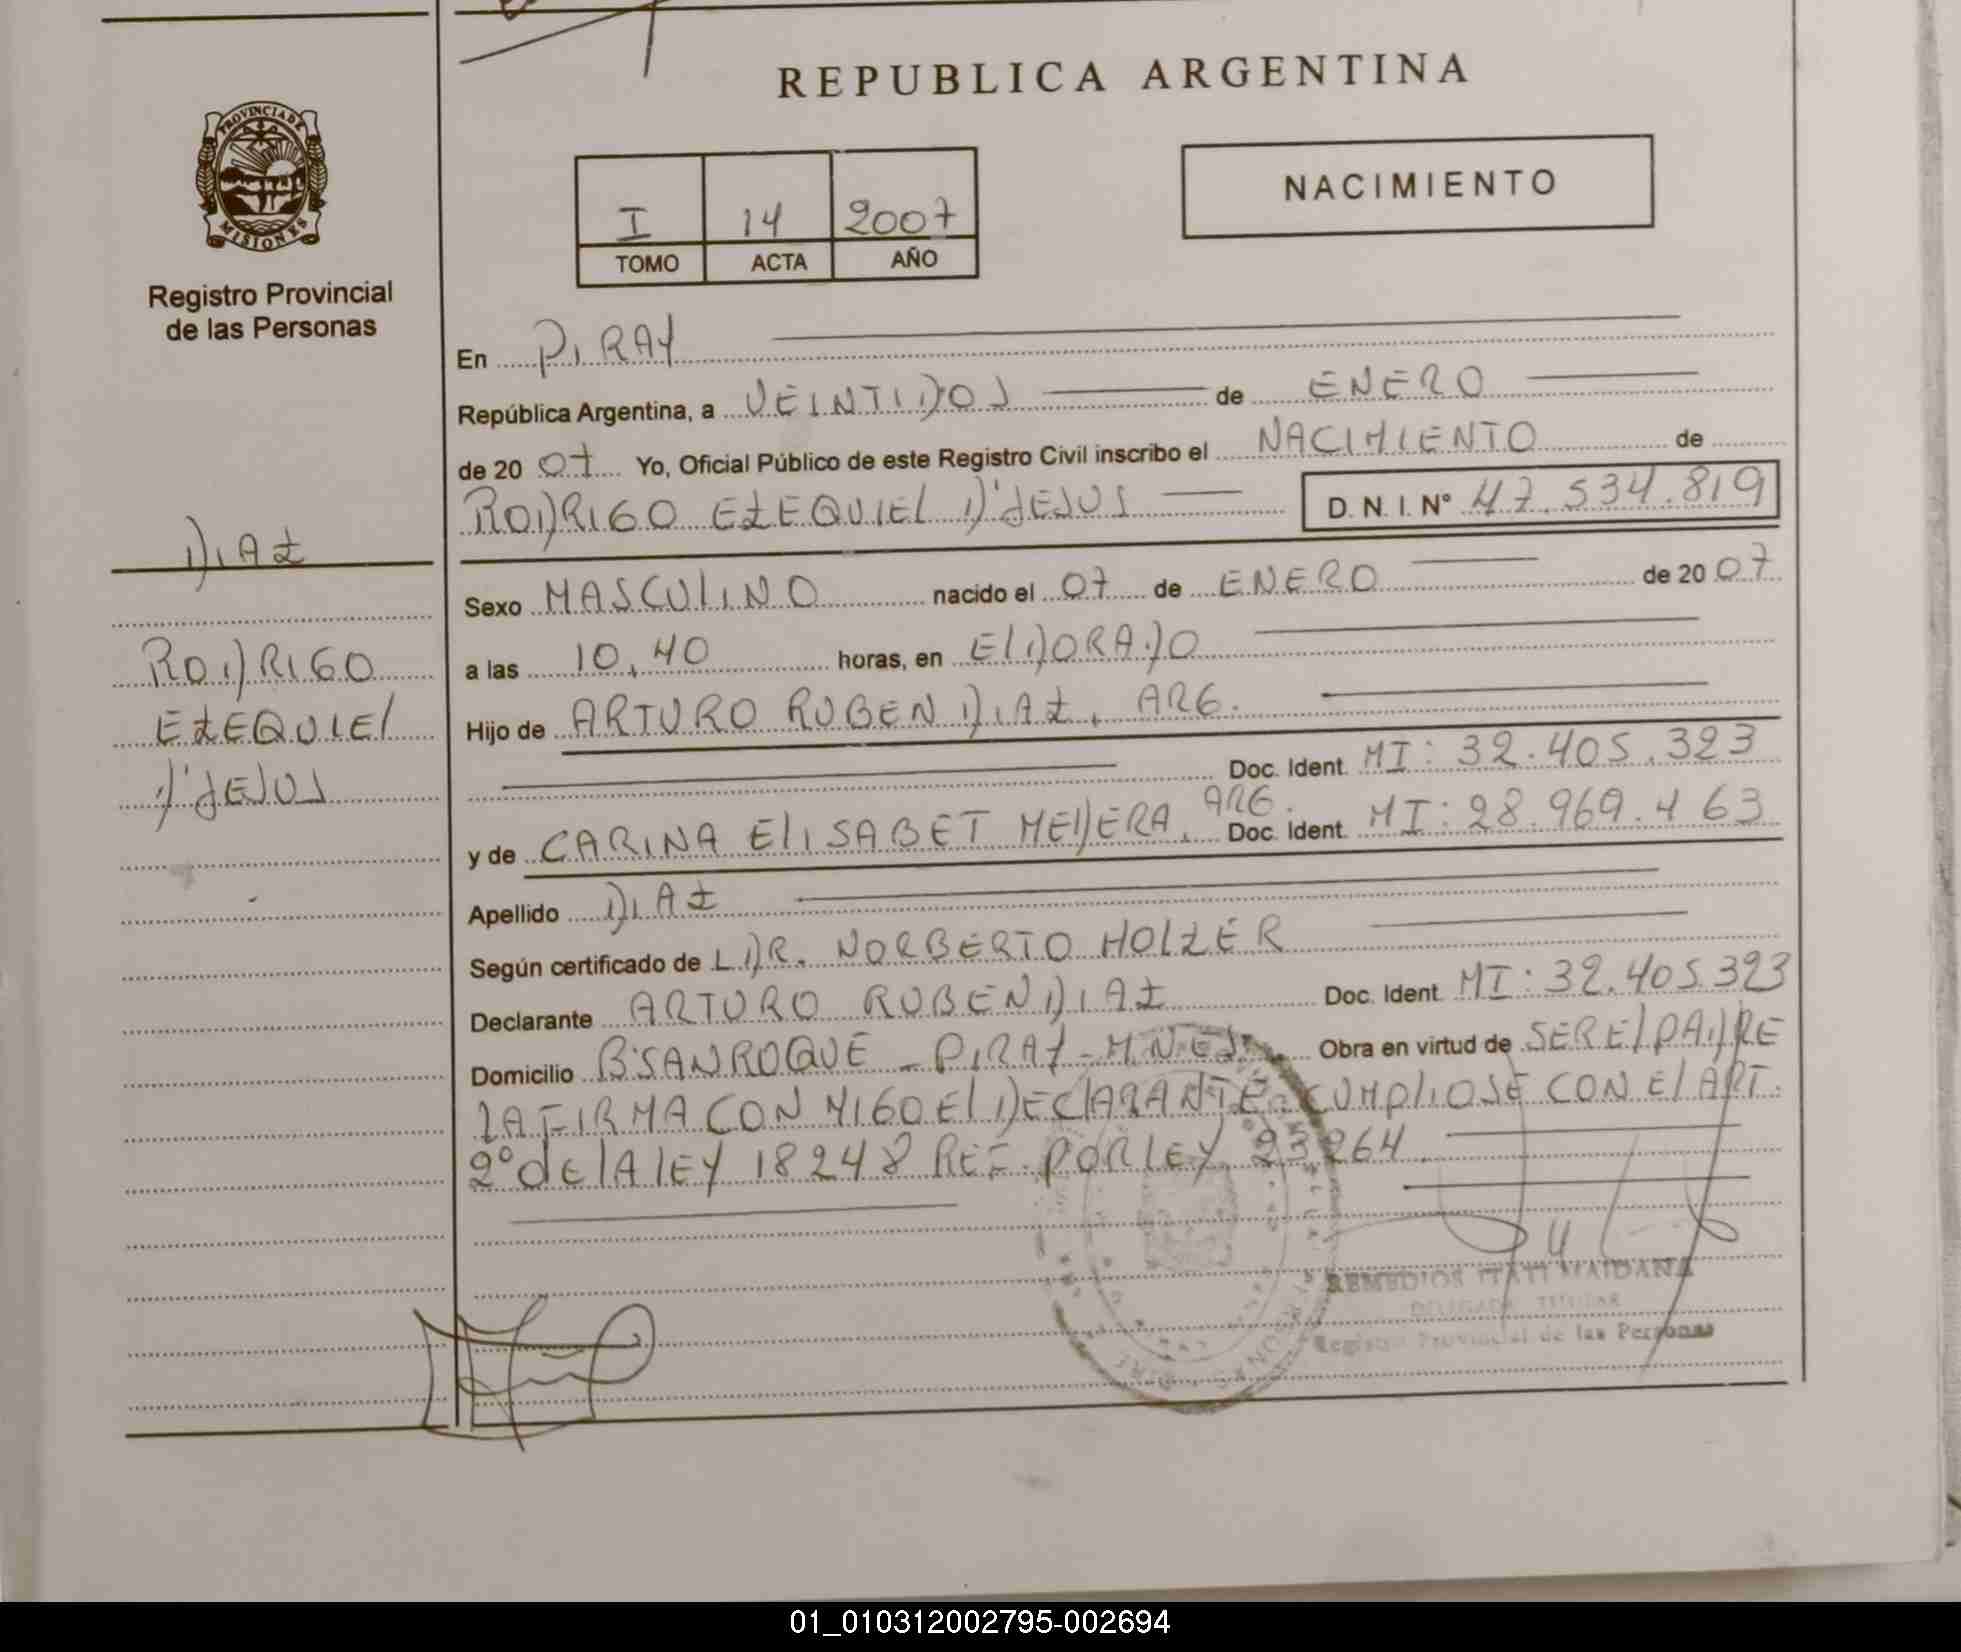 REPUBLICA ARGENTINA
PROVINCIA DE MISIONES
Registro Provincial
de las Personas
NACIMIENTO
I 14 2007
TOMO ACTA AÑO
En PIRAY
República Argentina, a VEINTIDOS de ENERO
de 20 07 Yo, Oficial Público de este Registro Civil inscribo el NACIMIENTO de
RODRIGO EZEQUIEL D'JESUS D. N. I. Nº 47.534.819
DIAZ
RODRIGO
EZEQUIEL
D'JESUS
Sexo MASCULINO nacido el 07 de ENERO de 20 07
a las 10,40 horas, en ELDORADO
Hijo de ARTURO RUBEN DIAZ, ARG.
Doc. Ident. MI: 32.405.323
y de CARINA ELISABET MEDERA, ARG. Doc. Ident. MI: 28.969.463
Apellido DIAZ
Según certificado de L DR. NORBERTO HOLZER
Declarante ARTURO RUBEN DIAZ Doc. Ident. MI: 32.405.323
Domicilio Bº SAN ROQUE - PIRAY - MNES. Obra en virtud de SER EL PADRE
LA FIRMA CON MIGO EL DECLARANTE CUMPLIOSE CON EL ART.
2º de LA LEY 18248 REF. POR LEY 23264.
REMEDIOS ITATI MAIDANA
DELEGADA TITULAR
Registro Provincial de las Personas
01_010312002795-002694